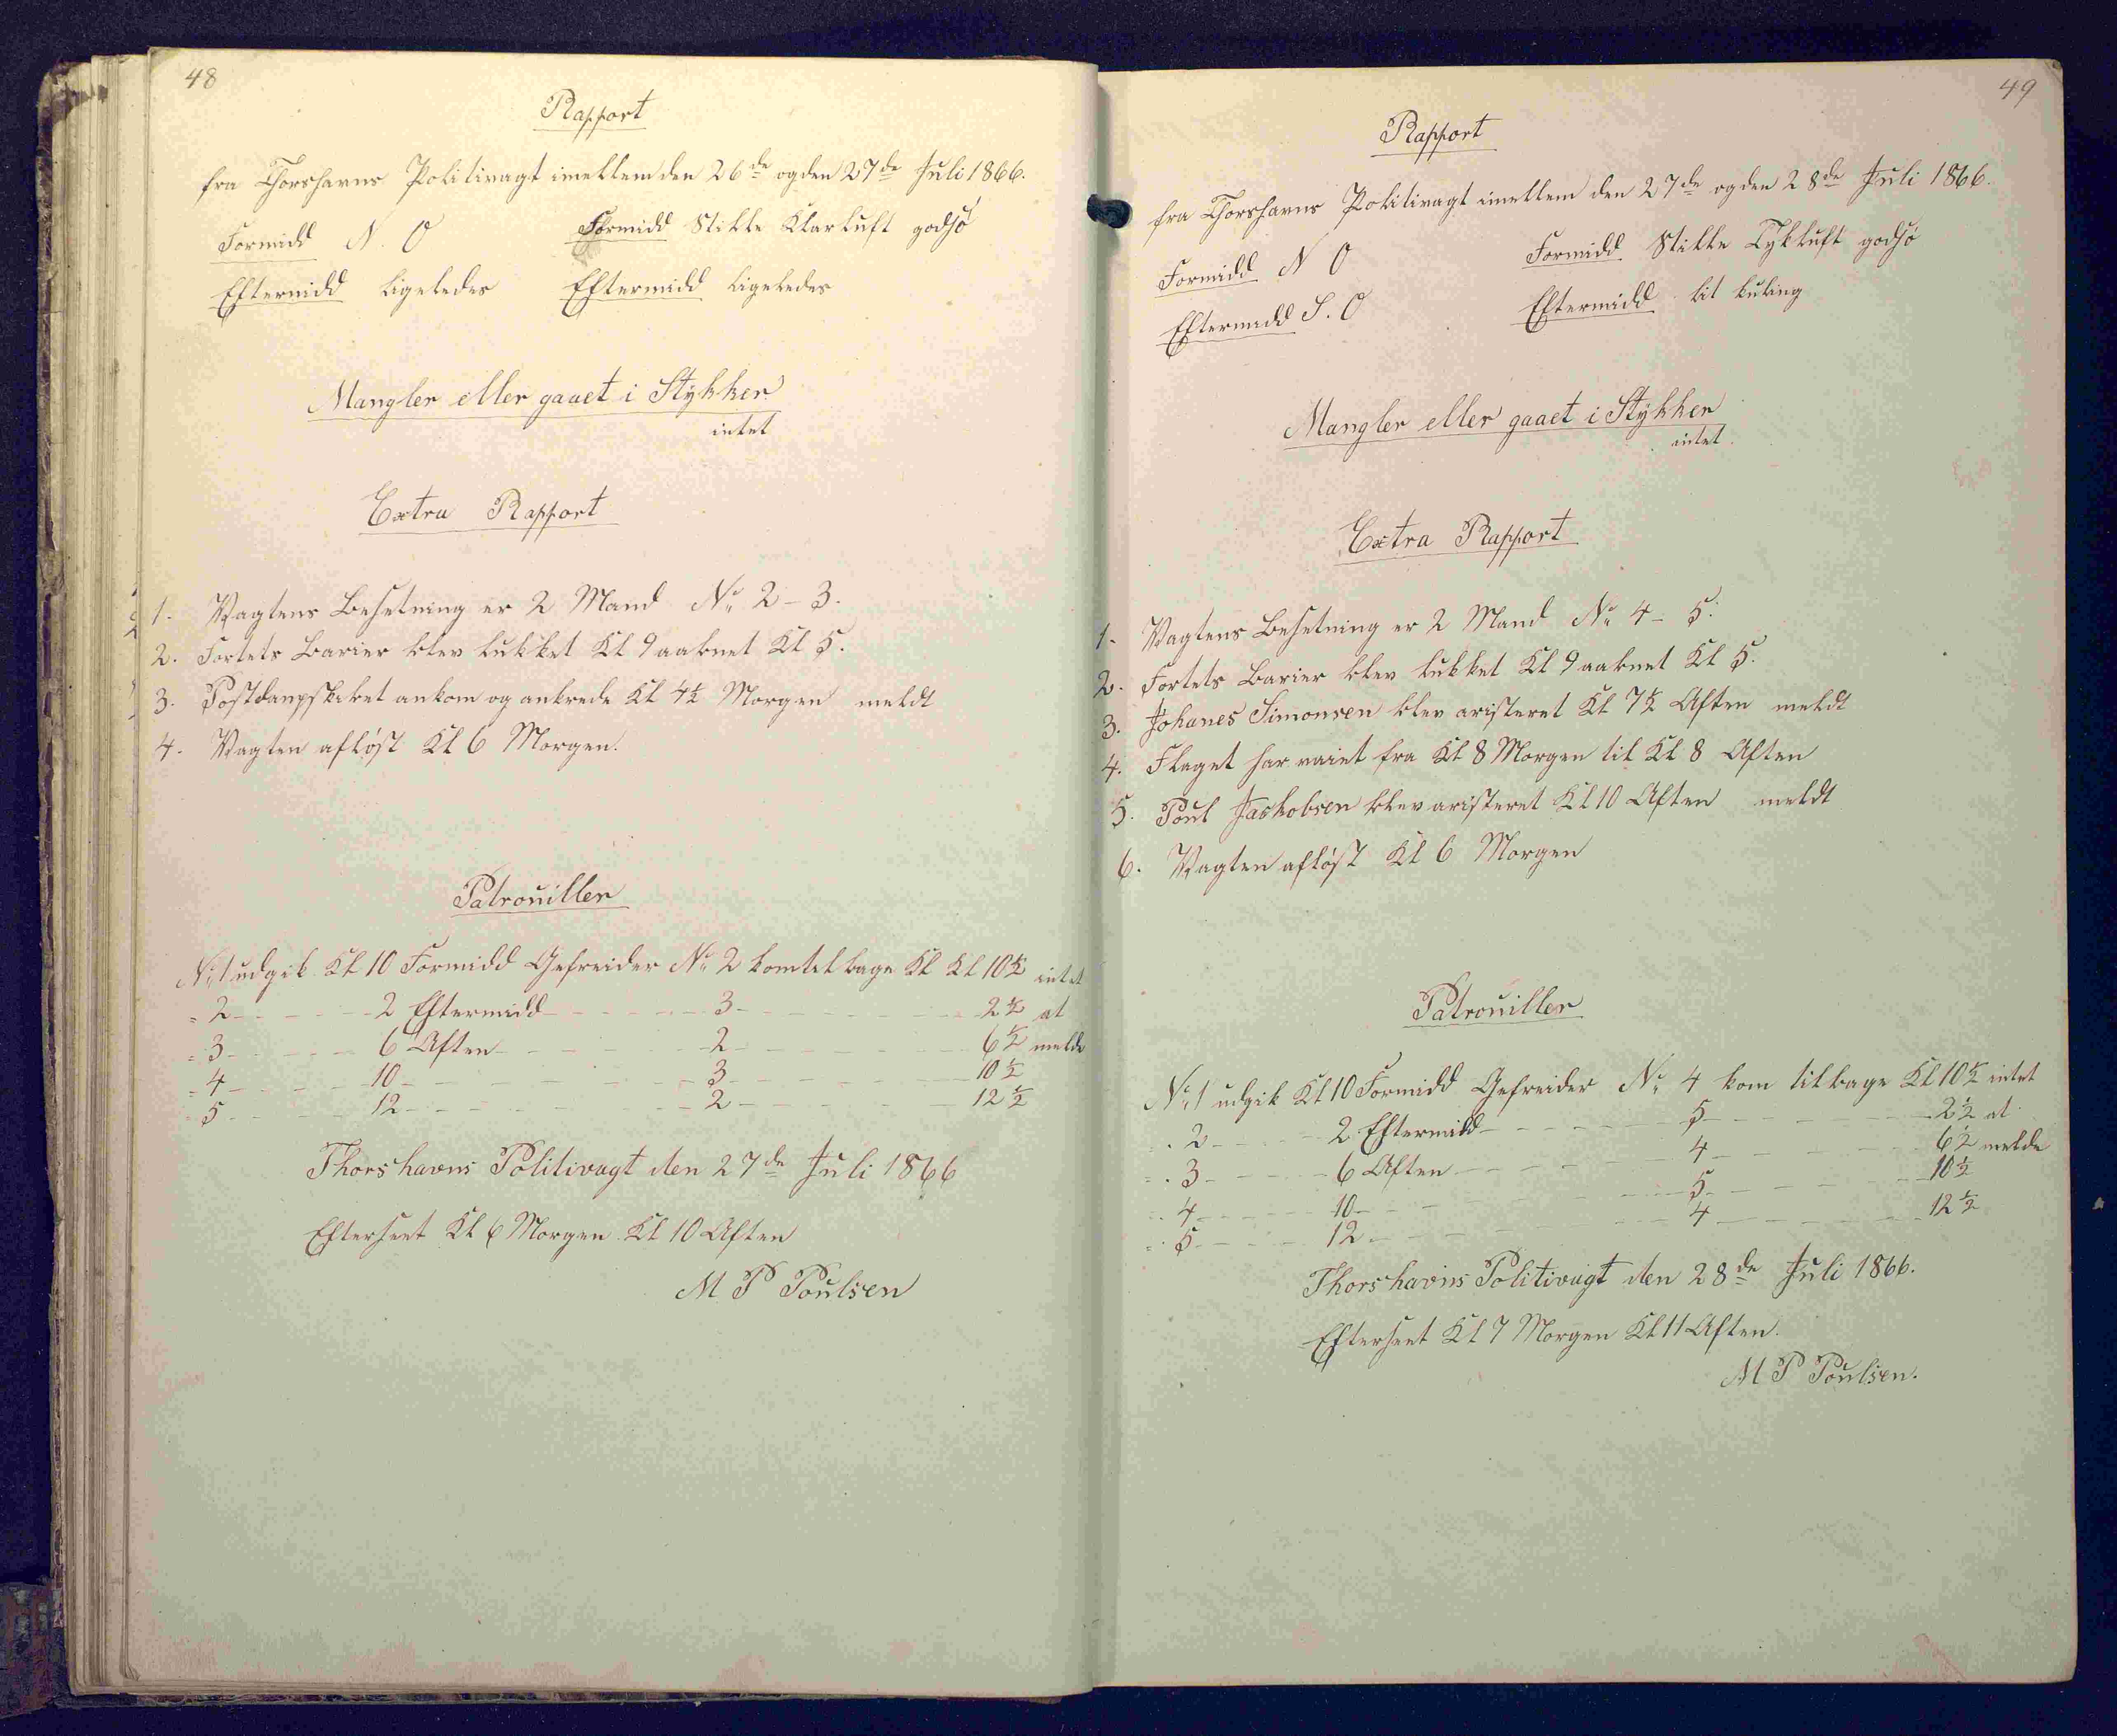 48
Rapport
fra Thorshavns Politivagt imellem den 26de og den 27de Juli 1866.
Formidd N. O Formidd Stille Klarluft godsø
Eftermidd ligeledes Eftermidd ligeledes
Mangler eller gaaet i Stykker
intet
Extra Rapport
1. Vagtens Besetning er 2 Mand No 2 - 3.
2. Fortets Barier blev lukket Kl 9 aabnet Kl 5.
3. Postdampskibet ankom og ankrede Kl 4½ Morgen meldt
4. Vagten afløst Kl 6 Morgen.
Patrouiller
No 1 udgik Kl 10 Formidd Gefreider No 2 kom tilbage Kl Kl 10½ intet
" 2 - - - 2 Eftermidd - - - 3 - - - 2½ at
" 3 - - - 6 Aften - - - 2 - - - 6½ melde
" 4 - - - 10 - - - 3 - - - 10½
" 5 - - - 12 - - - 2 - - - 12½
Thorshavns Politivagt den 27de Juli 1866
Efterseet Kl 6 Morgen Kl 10 Aften
M P Poulsen
49
Rapport
fra Thorshavns Politivagt imellem den 27de og den 28de Juli 1866.
Formidd N O Formidd Stille Tykluft godsø
Eftermidd S. O Eftermidd lit kuling
Mangler eller gaaet i Stykker
intet.
Extra Rapport
1. Vagtens Besetning er 2 Mand No 4 - 5.
2. Fortets Barier blev lukket Kl 9 aabnet Kl 5.
3. Johanes Simonsen blev aristeret Kl 7½ Aften meldt
4. Flaget har vaiet fra Kl 8 Morgen til Kl 8 Aften
5. Poul Jackobsen blev aristeret Kl 10 Aften meldt
6. Vagten afløst Kl 6 Morgen
Patrouiller
No 1 udgik Kl 10 Formidd Gefreider No 4 kom tilbage Kl 10½ intet
" 2 - - - 2 Eftermidd - - - 5 - - - 2½ at
" 3 - - - 6 Aften - - - 4 - - - 6½ melde
" 4 - - - 10 - - - 5 - - - 10½
" 5 - - - 12 - - - 4 - - - 12½
Thorshavns Politivagt den 28de Juli 1866.
Efterseet Kl 7 Morgen Kl 11 Aften.
M P Poulsen.